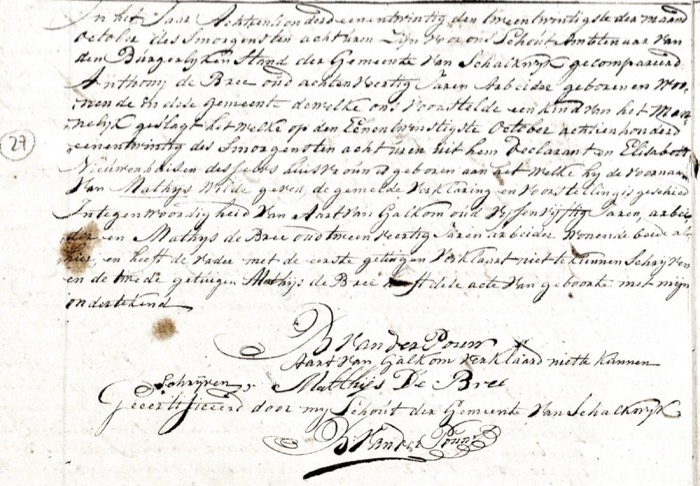 In het Jaar Achttienhonderd eenentwintig den tweentwintigste der maand
October des Smorgens ten acht uren Zyn voor ons Schout Ambtenaar Van
den Bürgerlyken Stand der Gemeente Van Schalkwyk gecompareerd
Anthony de Bree oud achtenveertig Jaren Arbeider geboren en Woo-
nende in deze Gemeente dewelke ons Voorstelde een kind van het Man
nelyk geslagt het welke op den Eenentwintigste October achtienhonderd
eenentwintig des Smorgens ten acht uren uit hem Declarant en Elisabeth
Nieuwenhuisen deszelvs huisvrouw is geboren aan het welke hy de voornaam
Van Mathys wilde geven de gemelde Verklaring en Voorstelling is geschied
In tegenwoordigheid Van Aart Van Galkom oud Vyfenvyftig Jaren arbei
der en Mathys de Bree oud tweenveertig Jaren arbeider wonende beide al
hier en heeft de vader met de eerste getuigen Verklaart niet te kunnen Schryven
en de twede getuigen Mathijs de Bree heeft dese acte Van geboorte met myn
ondertekend
27
B Van der Pouw
Aart Van Galkom verklaard niet te kunnen
Schryven
Matthijs De Bree
Gecertifieerd door my Schout der Gemeente Van Schalkwyk
B Van der Pouw